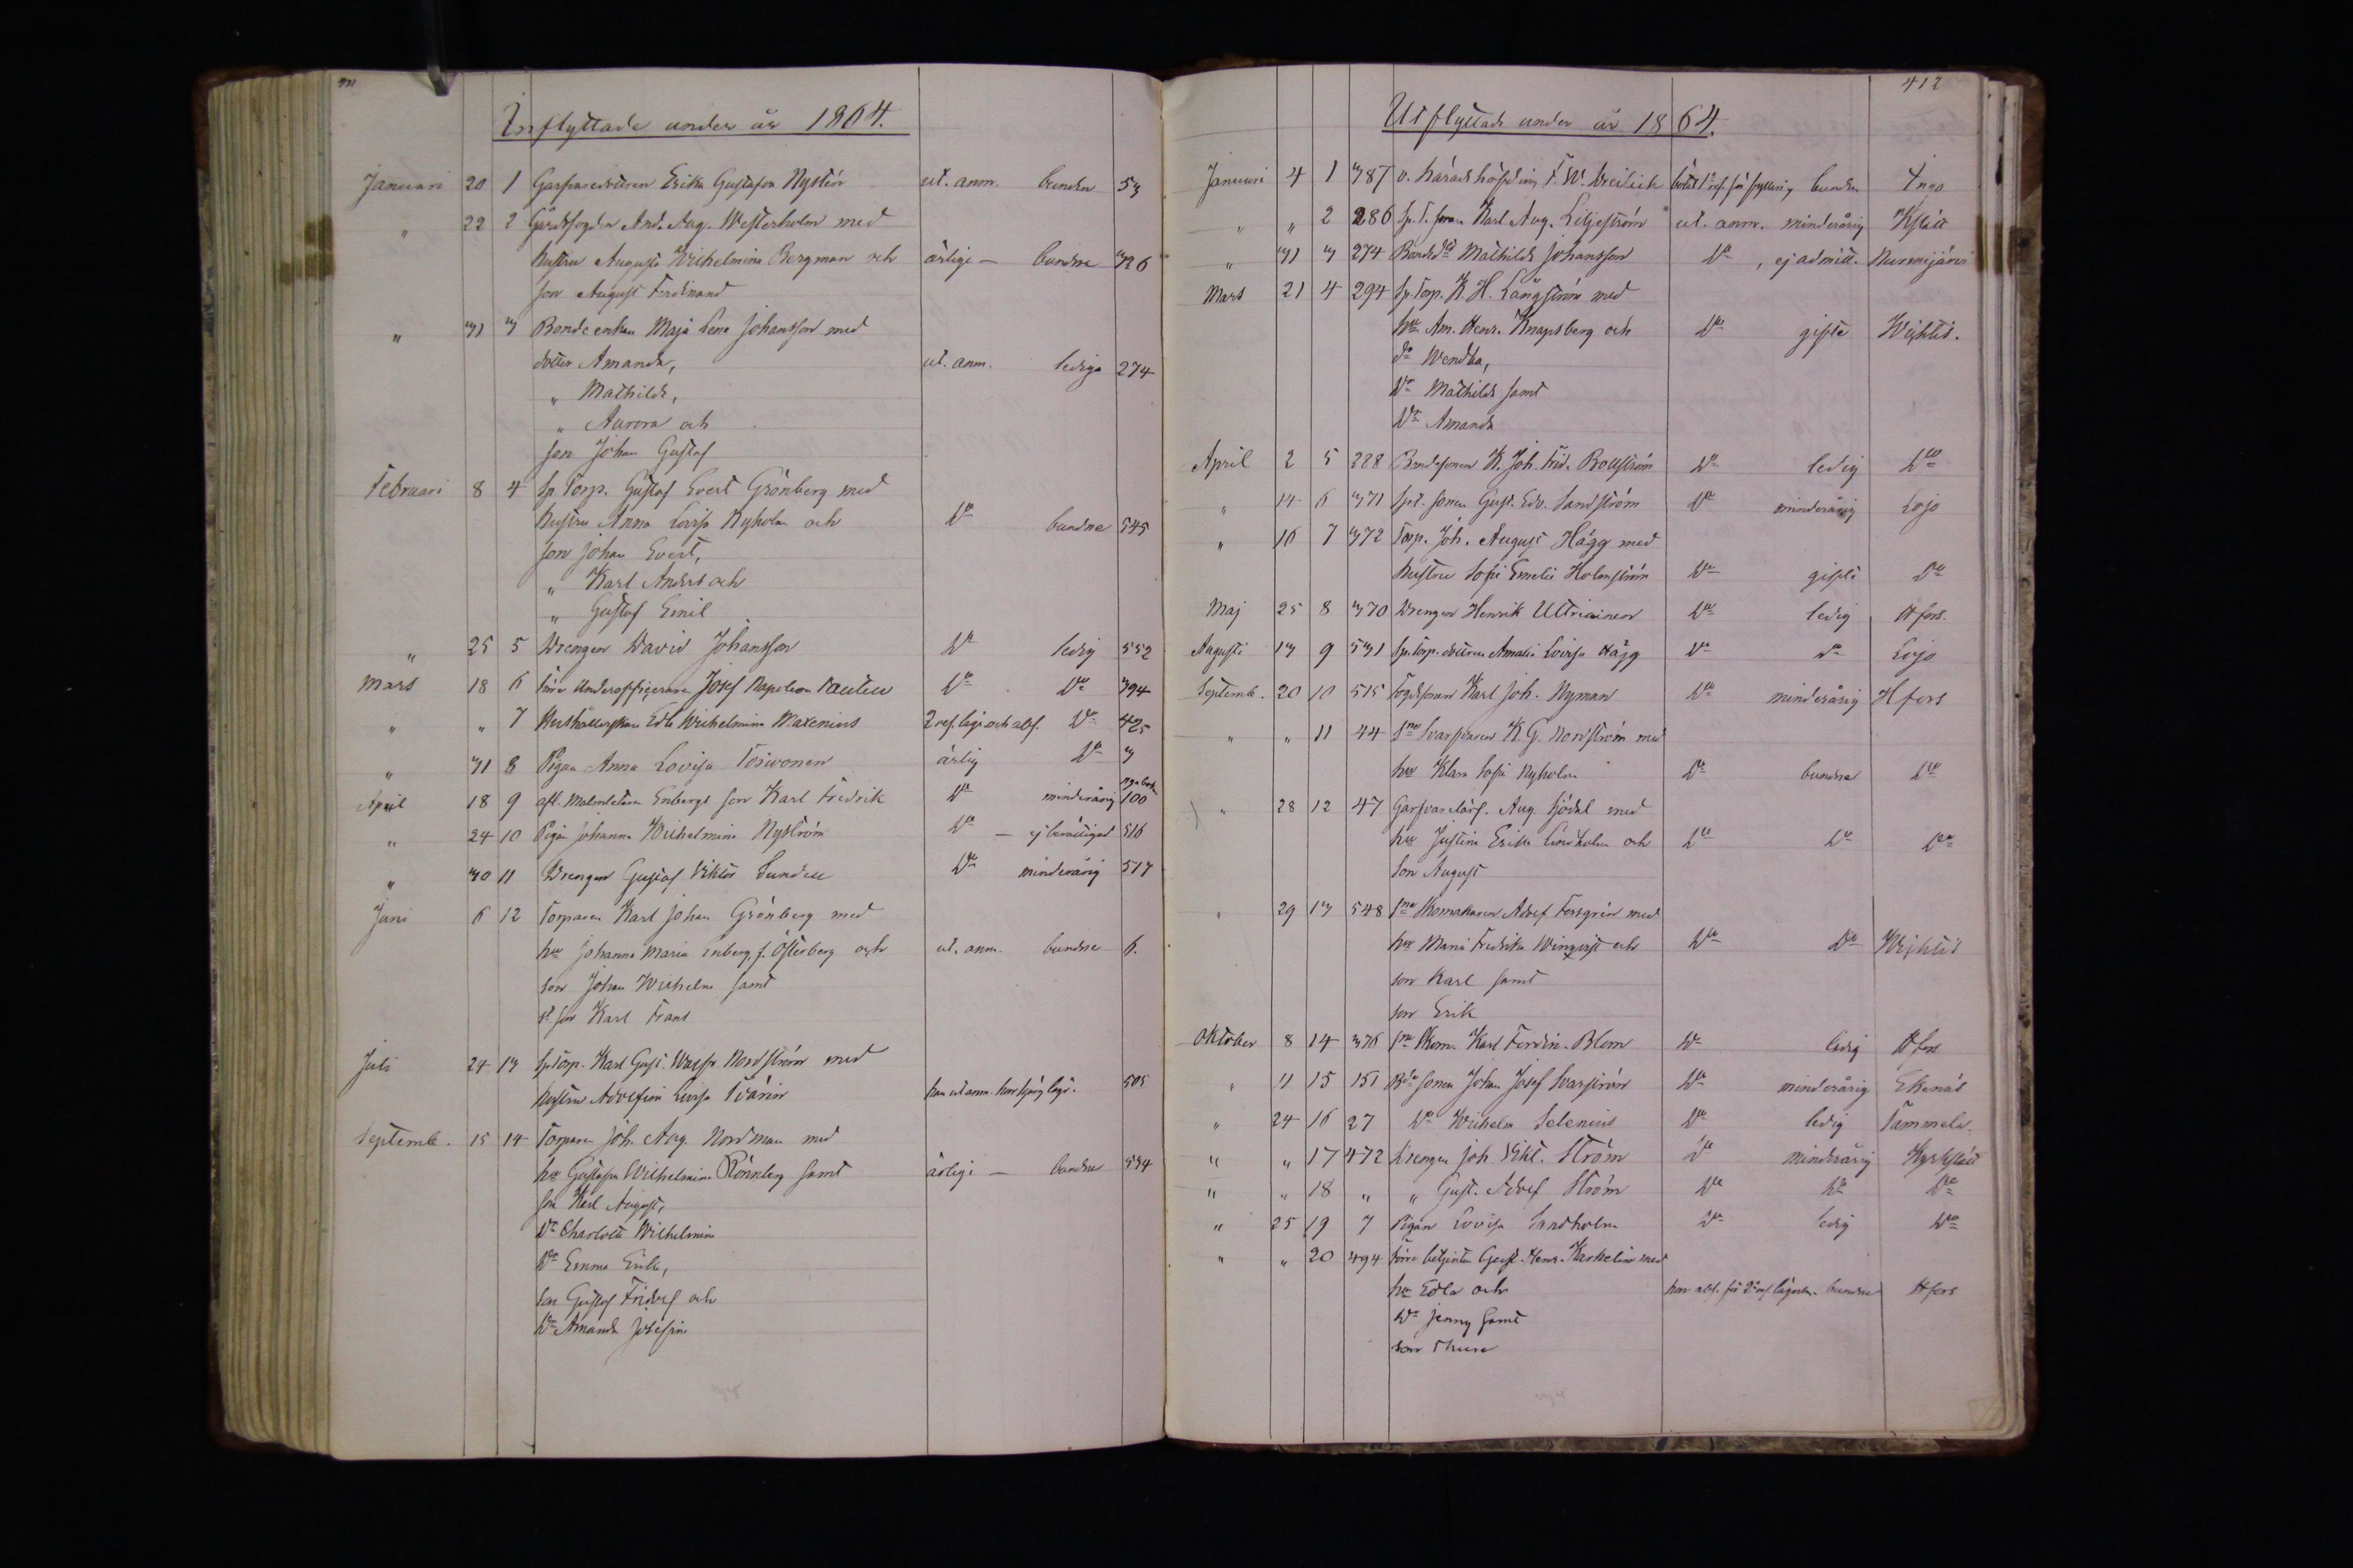 411
Inflyttade under år 1864.
Januari 20 1 Garfvaredottren Erika Gustafva Nystén ut. anm. bunden 53
" 22 2 Gårdsfogden And. Aug. Westerholm med
hustru Augusta Wilhelmina Bergman och ärlige — bundne 326
son August Ferdinand
" 31 3 Bonde enkan Maja Lena Johansson med
dotter Amanda, ut. anm. lediga 274
" Mathilda,
" Aurora och
son Johan Gustaf
Februari 8 4 Sp. Torp. Gustaf Evert Grönberg med
hustru Anna Lovisa Nyholm och Do bundne 545
son Johan Evert,
" Karl Anders och
" Gustaf Emil
" 25 5 Drengen David Johansson Do ledig 552
Mars 18 6 förre Underofficeraren Josef Napoleon Do Do 394
" " 7 Hushållerskan Edla Wilhelmina Maxenius 2 ref. lagd och abs. Do 425
" 31 8 Pigan Anna Lovisa Toiwonen ärlig Do 3
April 18 9 afl. Enbergs son Karl Fredrik Do minderårig nya bok 100
" 24 10 Pigan Johanna Wilhelmina Nyström Do — ej berättigad 516
" 30 11 Drengen Gustaf Viktor Sundell Do minderårig 517
Juni 6 12 Torparen Karl Johan Grönberg med
hu Johanna Maria Enberg, f. Österberg och ut. anm. bundne 6.
son Johan Wilhelm samt
st. son Karl Frans
Juli 24 13 Sp. Torp. Karl Gust. Nordström med
hustru Adolfina Lovisa han ut. anm. 505
Septemb. 15 14 Torparen Joh. Aug. Nordman med
hu Gustafva Wilhelmina Rönnberg samt ärlige — bundne 534
son Karl August,
Dr Charlotta Wilhelmina
Dr Emma Erika,
son Gustaf Fridolf och
Dr Amanda Josefina
412
Utflyttade under år 1864.
Januari 4 1 387 v. häradshöfding F. W. bunden Ingo
" " 2 286 Sp. T. sonen Karl Aug. Liljeström ut. anm. minderårig Kslätt
" 31 3 274 Bondedr Mathilda Johansson Do , ej admitt. Nurmijärvi
Mars 21 4 294 Sp. Torp. K. H. Långström med
hu An. Henr. Knapsberg och Do gifte Wichtis.
dr Wendla,
Dr Mathilda samt
Dr Amanda
April 2 5 228 Bondesonen K. Joh. Frid. Bollström Do ledig Do
" 14 6 371 Sp. T. sonen Gust. Edv. Sandström Do minderårig Lojo
" 16 7 372 Torp. Joh. August Hägg med
hustru Sofia Emelie Holmström Do gifte Do
Maj 25 8 370 Drengen Henrik Ultriainen Do ledig Hfors.
Augusti 13 9 531 Sp. Torp. dottren Amalia Lovisa Hägg Do Do Lojo
Septemb. 20 10 515 Fogdesonen Karl Joh. Nyman Do minderårig Hfors
" " 11 44 Svarfvaren K. G. Nordström med
hu Klara Sofia Nyholm Do bundne Do
" 28 12 47 Garfvarelärl. Aug. Sjödal med
hu Justina Erika Lindholm och Do Do Do
son August
" 29 13 548 Skomakaren Adolf Forsgrén med
hu Maria Fredrika Winqvist och Do Do Wichtis
son Karl samt
son Erik
Oktober 8 14 376 Skom. Karl Ferdin. Blom Do ledig Hfors
" 11 15 151 Bde sonen Johan Josef Svarström Do minderårig Ekenäs
" 24 16 27 Do Wilhelm Selenius Do ledig Tammela.
" " 17 472 Drengen Joh. Vikt. Ström Do minderårig Kyrkslätt
" " 18 " " Gust. Adolf Ström Do Do Do
" 25 19 7 Pigan Lovisa Sandholm Do ledig Do
" " 20 494 förre betjenten Gust. Henr. Karkelin med
hu Edla och bundne Hfors
Dr Jenny samt
son Thure